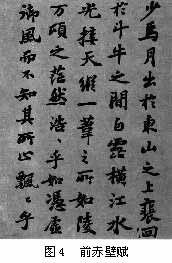 少焉月出於東山之上裵回
於斗牛之間白露橫江水
光接天縱一葦之所如陵
万頃之茫然浩〻乎如馮虛
御風而不知其所止飄〻乎
图4 前赤壁赋